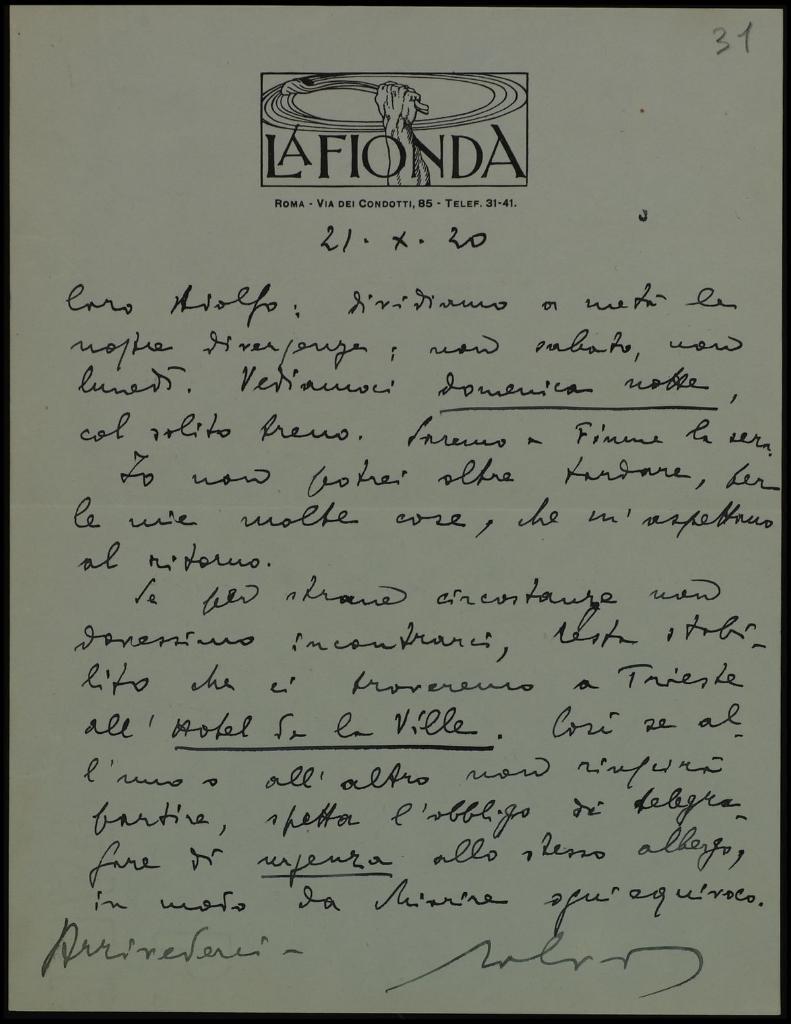 31
LA FIONDA
ROMA - VIA DEI CONDOTTI, 85 - TELEF. 31-41.
21 . X . 20
Caro Adolfo: dividiamo a metà le
nostre divergenze; non sabato, non
lunedì. Vediamoci domenica notte,
col solito treno. Saremo a Fiume la sera.
Io non potrei oltre tardare, per
le mie molte cose, che m'aspettano
al ritorno.
Se per strane circostanze non
dovessimo incontrarci, resta stabi-
lito che ci troveremo a Trieste
all'Hotel de la Ville. Così se al-
l'uno o all'altro non riuscirà
partire, spetta l'obbligo di telegra-
fare di urgenza allo stesso albergo,
in modo da chiarire ogni equivoco.
Arrivederci -